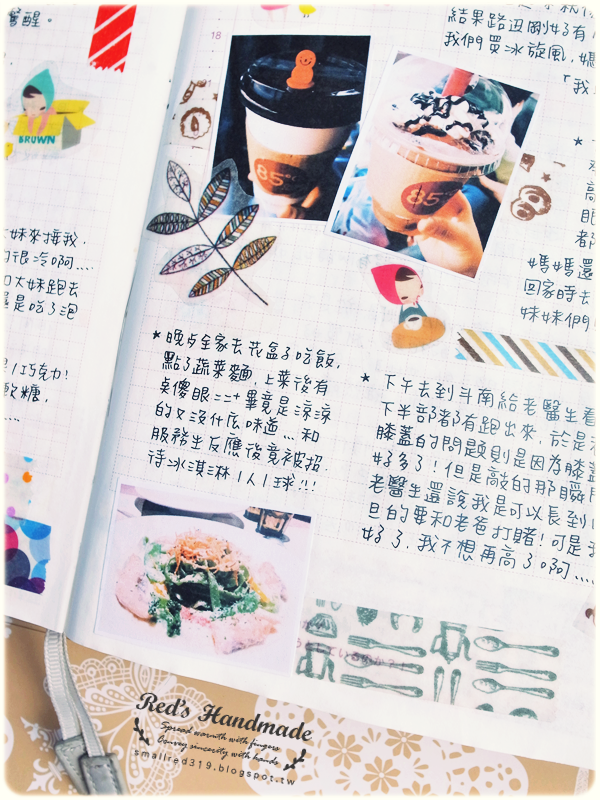 醒。
BROWN
妹來接我,
的很冷啊....
和大妹跑去
還是吃了泡
/巧克力!
軟糖,
18
結果路邊剛好有
我們買冰旋風,媽
「我
85
85
高
眼
都
媽媽還
回家時去
妹妹們
★ 晚上全家去花盒子吃飯,
點了蔬菜麵,上菜後有
點傻眼=.=+畢竟是涼涼
的又沒什麼味道...和
服務生反應後竟被招
待冰淇淋1人1球!!!
★ 下午去到斗南給老醫生看
下半部都有跑出來,於是
膝蓋的問題則是因為膝蓋
好多了!但是敲的那瞬間
老醫生還說我是可以長到
旦的要和老爸打賭!可是我
好了,我不想再高了啊....
Red's Handmade
Spread warmth with fingers
Convey sincerity with hands
smallred319.blogspot.tw